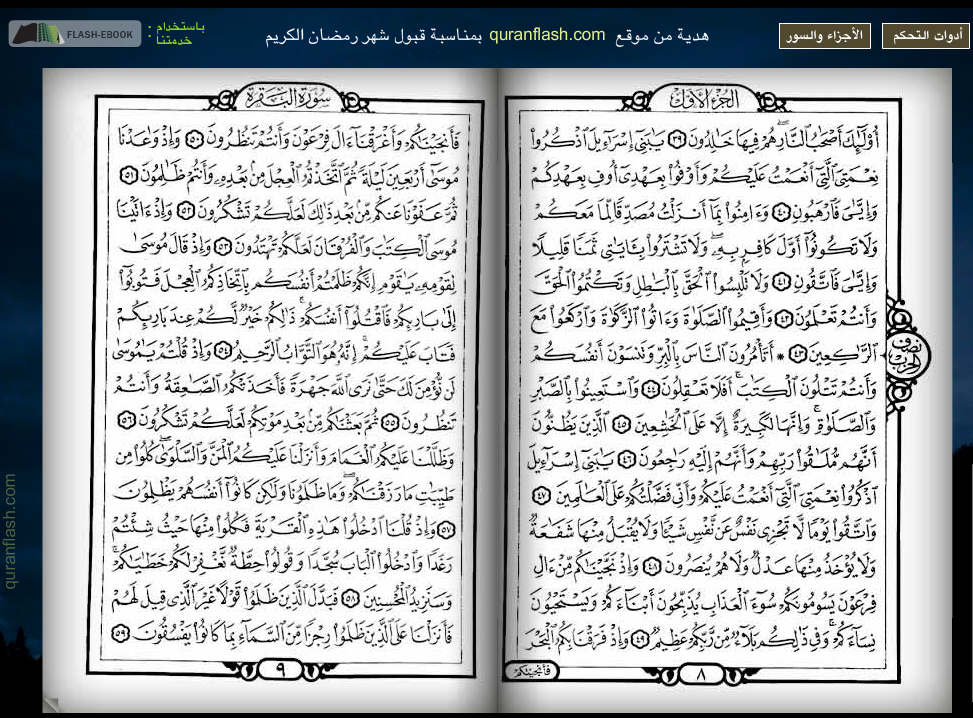 أدوات التحكم
الأجزاء والسور
هدية من موقع quranflash.com بمناسبة قبول شهر رمضان الكريم
باستخدام :
خدمتنا :
FLASH-EBOOK
الجزء الأول
أُوْلَٰٓئِكَ أَصْحَٰبُ ٱلنَّارِ هُمْ فِيهَا خَٰلِدُونَ ٣٩ يَٰبَنِىٓ إِسْرَٰٓءِيلَ ٱذْكُرُوا۟
نِعْمَتِىَ ٱلَّتِىٓ أَنْعَمْتُ عَلَيْكُمْ وَأَوْفُوا۟ بِعَهْدِىٓ أُوفِ بِعَهْدِكُمْ
وَإِيَّٰىَ فَٱرْهَبُونِ ٤٠ وَءَامِنُوا۟ بِمَآ أَنزَلْتُ مُصَدِّقًا لِّمَا مَعَكُمْ
وَلَا تَكُونُوٓا۟ أَوَّلَ كَافِرٍ بِهِۦ وَلَا تَشْتَرُوا۟ بِـَٔايَٰتِى ثَمَنًا قَلِيلًا
وَإِيَّٰىَ فَٱتَّقُونِ ٤١ وَلَا تَلْبِسُوا۟ ٱلْحَقَّ بِٱلْبَٰطِلِ وَتَكْتُمُوا۟ ٱلْحَقَّ
وَأَنتُمْ تَعْلَمُونَ ٤٢ وَأَقِيمُوا۟ ٱلصَّلَوٰةَ وَءَاتُوا۟ ٱلزَّكَوٰةَ وَٱرْكَعُوا۟ مَعَ
ٱلرَّٰكِعِينَ ٤٣ * أَتَأْمُرُونَ ٱلنَّاسَ بِٱلْبِرِّ وَتَنسَوْنَ أَنفُسَكُمْ
وَأَنتُمْ تَتْلُونَ ٱلْكِتَٰبَ أَفَلَا تَعْقِلُونَ ٤٤ وَٱسْتَعِينُوا۟ بِٱلصَّبْرِ
وَٱلصَّلَوٰةِ وَإِنَّهَا لَكَبِيرَةٌ إِلَّا عَلَى ٱلْخَٰشِعِينَ ٤٥ ٱلَّذِينَ يَظُنُّونَ
أَنَّهُم مُّلَٰقُوا۟ رَبِّهِمْ وَأَنَّهُمْ إِلَيْهِ رَٰجِعُونَ ٤٦ يَٰبَنِىٓ إِسْرَٰٓءِيلَ
ٱذْكُرُوا۟ نِعْمَتِىَ ٱلَّتِىٓ أَنْعَمْتُ عَلَيْكُمْ وَأَنِّى فَضَّلْتُكُمْ عَلَى ٱلْعَٰلَمِينَ ٤٧
وَٱتَّقُوا۟ يَوْمًا لَّا تَجْزِى نَفْسٌ عَن نَّفْسٍ شَيْـًٔا وَلَا يُقْبَلُ مِنْهَا شَفَٰعَةٌ
وَلَا يُؤْخَذُ مِنْهَا عَدْلٌ وَلَا هُمْ يُنصَرُونَ ٤٨ وَإِذْ نَجَّيْنَٰكُم مِّنْ ءَالِ
فِرْعَوْنَ يَسُومُونَكُمْ سُوٓءَ ٱلْعَذَابِ يُذَبِّحُونَ أَبْنَآءَكُمْ وَيَسْتَحْيُونَ
نِسَآءَكُمْ وَفِى ذَٰلِكُم بَلَآءٌ مِّن رَّبِّكُمْ عَظِيمٌ ٤٩ وَإِذْ فَرَقْنَا بِكُمُ ٱلْبَحْرَ
نصف
الحزب
فأنجينكم
٨
سورة البقرة
فَأَنجَيْنَٰكُمْ وَأَغْرَقْنَآ ءَالَ فِرْعَوْنَ وَأَنتُمْ تَنظُرُونَ ٥٠ وَإِذْ وَٰعَدْنَا
مُوسَىٰٓ أَرْبَعِينَ لَيْلَةً ثُمَّ ٱتَّخَذْتُمُ ٱلْعِجْلَ مِنۢ بَعْدِهِۦ وَأَنتُمْ ظَٰلِمُونَ ٥١
ثُمَّ عَفَوْنَا عَنكُم مِّنۢ بَعْدِ ذَٰلِكَ لَعَلَّكُمْ تَشْكُرُونَ ٥٢ وَإِذْ ءَاتَيْنَا
مُوسَى ٱلْكِتَٰبَ وَٱلْفُرْقَانَ لَعَلَّكُمْ تَهْتَدُونَ ٥٣ وَإِذْ قَالَ مُوسَىٰ
لِقَوْمِهِۦ يَٰقَوْمِ إِنَّكُمْ ظَلَمْتُمْ أَنفُسَكُم بِٱتِّخَاذِكُمُ ٱلْعِجْلَ فَتُوبُوٓا۟
إِلَىٰ بَارِئِكُمْ فَٱقْتُلُوٓا۟ أَنفُسَكُمْ ذَٰلِكُمْ خَيْرٌ لَّكُمْ عِندَ بَارِئِكُمْ
فَتَابَ عَلَيْكُمْ إِنَّهُۥ هُوَ ٱلتَّوَّابُ ٱلرَّحِيمُ ٥٤ وَإِذْ قُلْتُمْ يَٰمُوسَىٰ
لَن نُّؤْمِنَ لَكَ حَتَّىٰ نَرَى ٱللَّهَ جَهْرَةً فَأَخَذَتْكُمُ ٱلصَّٰعِقَةُ وَأَنتُمْ
تَنظُرُونَ ٥٥ ثُمَّ بَعَثْنَٰكُم مِّنۢ بَعْدِ مَوْتِكُمْ لَعَلَّكُمْ تَشْكُرُونَ ٥٦
وَظَلَّلْنَا عَلَيْكُمُ ٱلْغَمَامَ وَأَنزَلْنَا عَلَيْكُمُ ٱلْمَنَّ وَٱلسَّلْوَىٰ كُلُوا۟ مِن
طَيِّبَٰتِ مَا رَزَقْنَٰكُمْ وَمَا ظَلَمُونَا وَلَٰكِن كَانُوٓا۟ أَنفُسَهُمْ يَظْلِمُونَ
٥٧ وَإِذْ قُلْنَا ٱدْخُلُوا۟ هَٰذِهِ ٱلْقَرْيَةَ فَكُلُوا۟ مِنْهَا حَيْثُ شِئْتُمْ
رَغَدًا وَٱدْخُلُوا۟ ٱلْبَابَ سُجَّدًا وَقُولُوا۟ حِطَّةٌ نَّغْفِرْ لَكُمْ خَطَٰيَٰكُمْ
وَسَنَزِيدُ ٱلْمُحْسِنِينَ ٥٨ فَبَدَّلَ ٱلَّذِينَ ظَلَمُوا۟ قَوْلًا غَيْرَ ٱلَّذِى قِيلَ لَهُمْ
فَأَنزَلْنَا عَلَى ٱلَّذِينَ ظَلَمُوا۟ رِجْزًا مِّنَ ٱلسَّمَآءِ بِمَا كَانُوا۟ يَفْسُقُونَ ٥٩
٩
quranflash.com